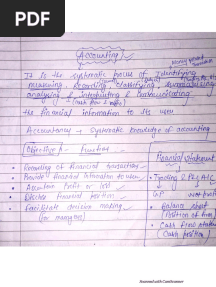 PDF
Accounting
It is the systematic process of Identifying
measuring, Recording, classifying, summarising
analysing & Interpreting & Communicating
the financial information to its user
Accountancy → Systematic knowledge of accounting
Objective / function
Financial statement
Recording of financial transactions
Provide financial information to users
Trading & P&L A/C
Ascertain Profit or loss
Financial position
Balance sheet
Facilitate decision making
(Position of firm)
(for managers)
Cash flow
(Cash position)
Scanned with CamScanner